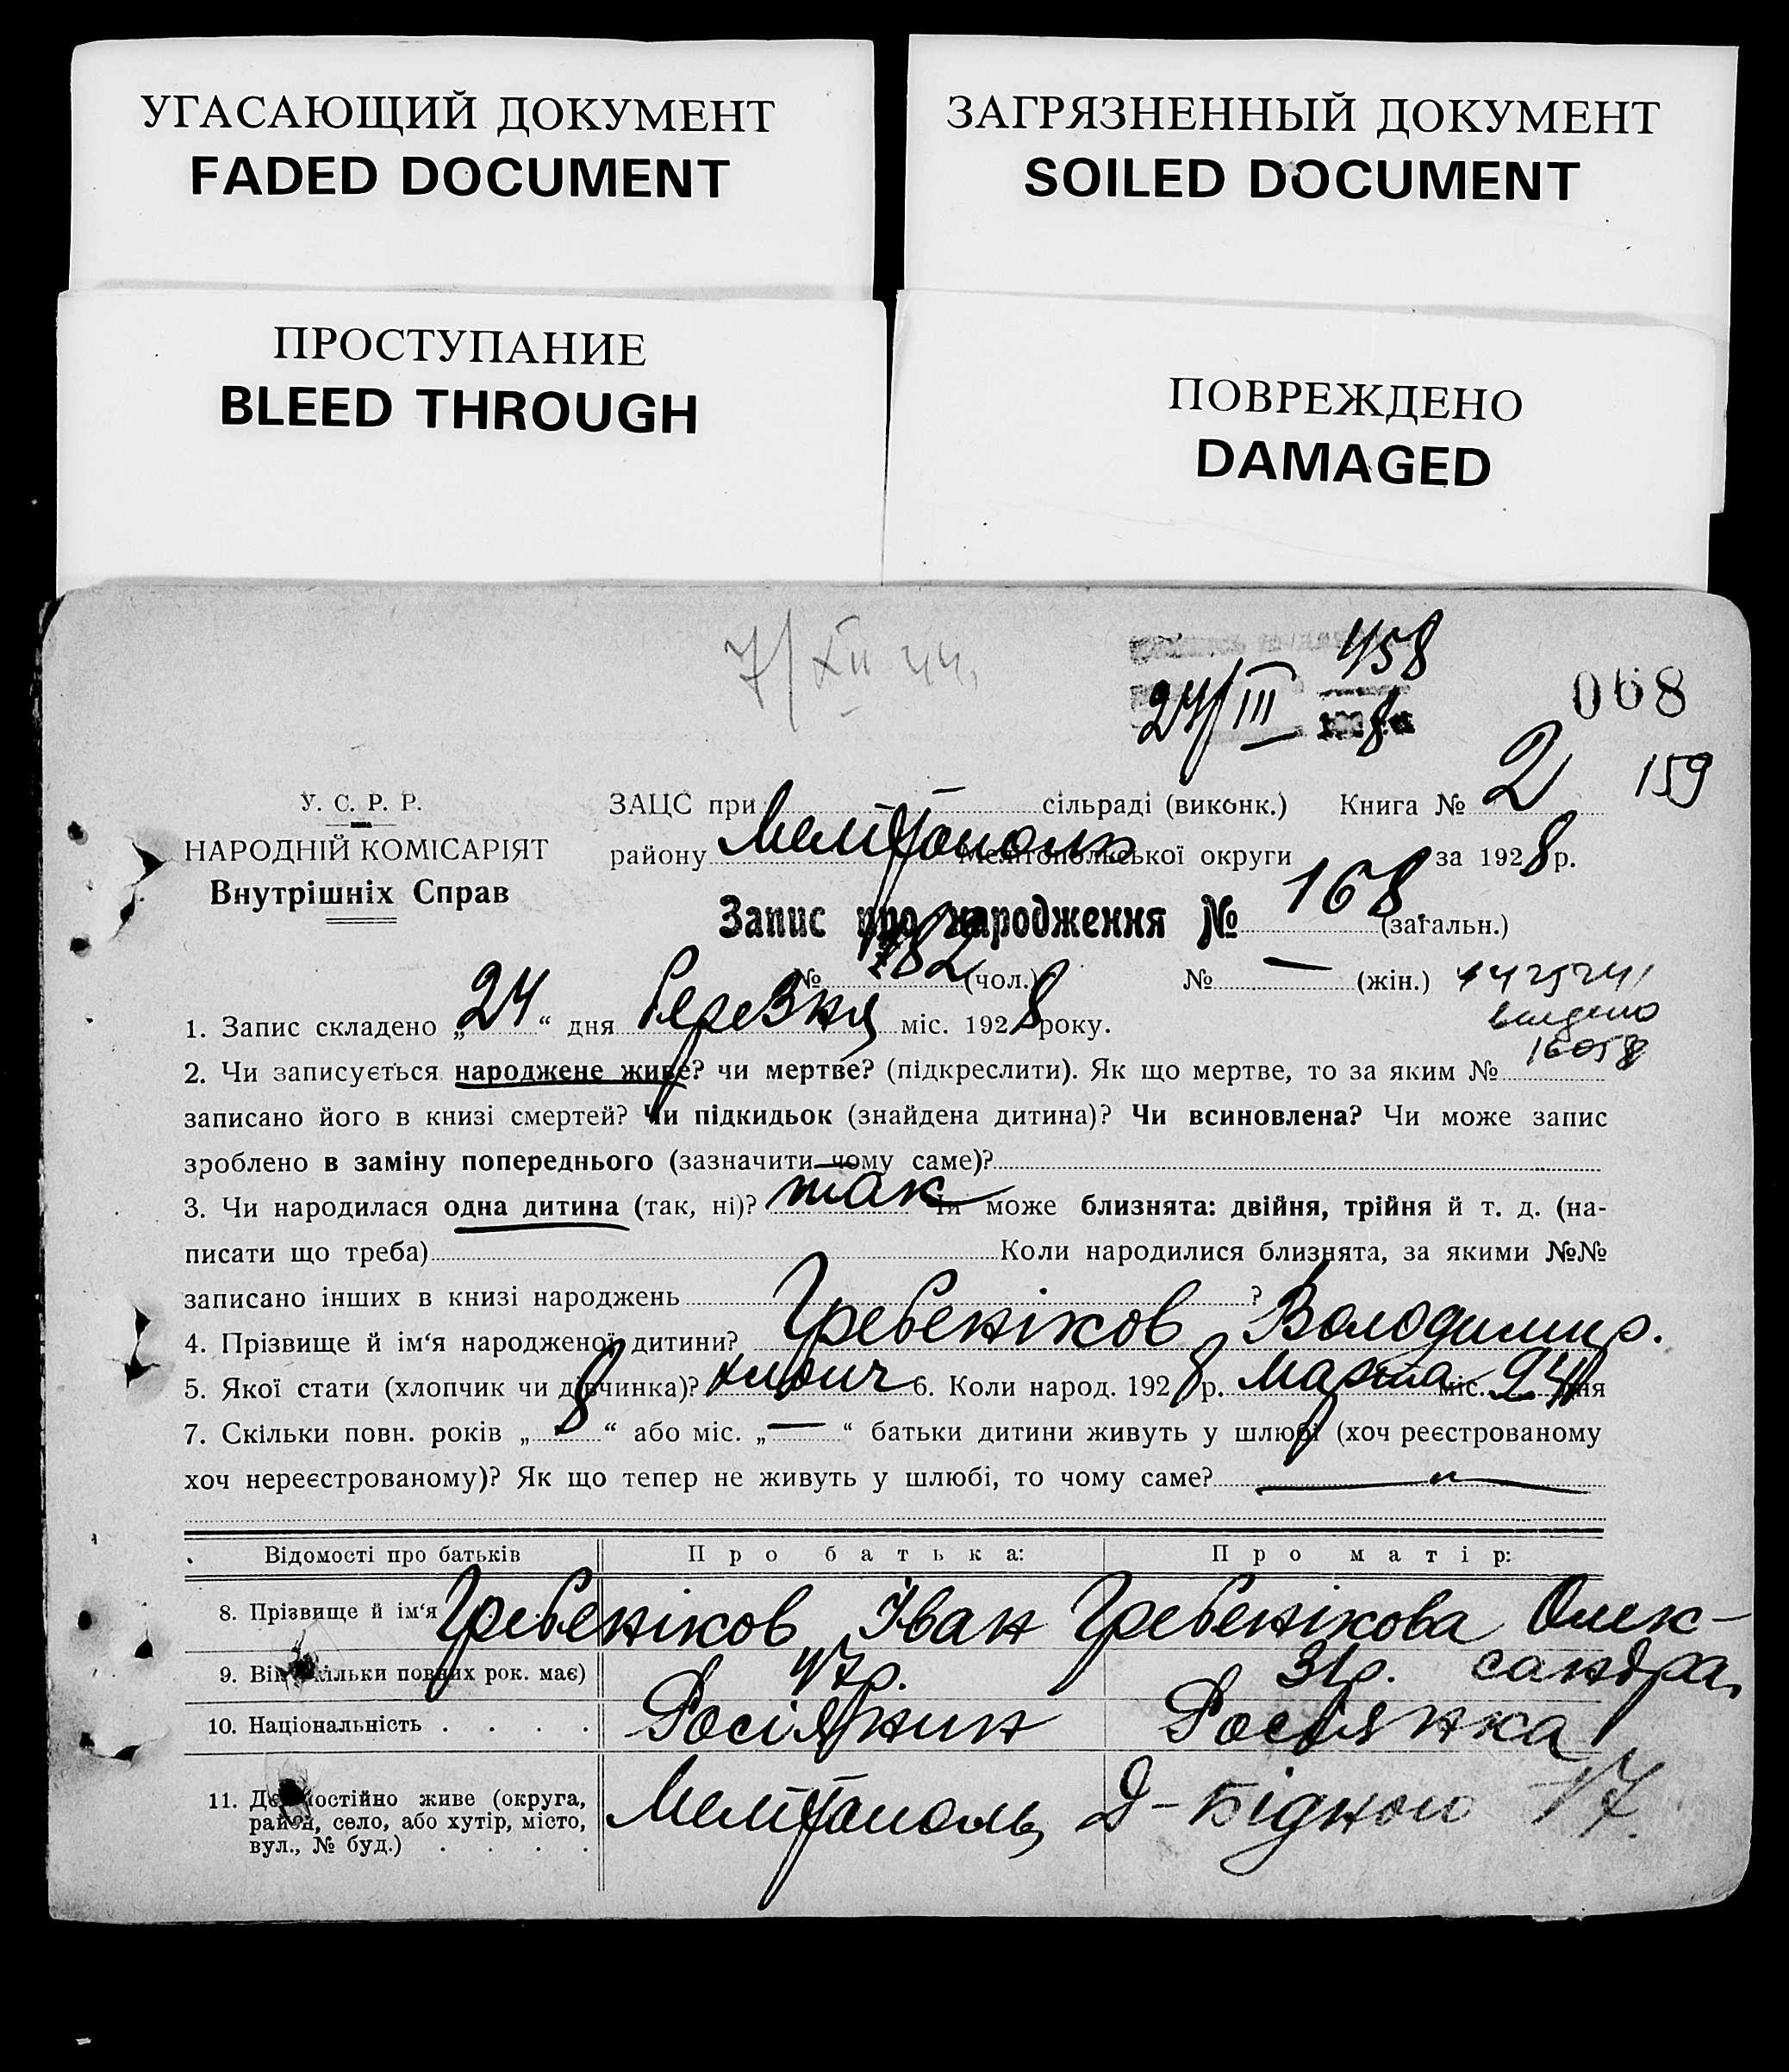 УГАСАЮЩИЙ ДОКУМЕНТ
FADED DOCUMENT
ЗАГРЯЗНЕННЫЙ ДОКУМЕНТ
SOILED DOCUMENT
ПРОСТУПАНИЕ
BLEED THROUGH
ПОВРЕЖДЕНО
DAMAGED
7/XII 44.
458
24/III 8
068
159
У. С. Р. Р.
НАРОДНІЙ КОМІСАРІЯТ
Внутрішніх Справ
ЗАЦС при сільраді (виконк.) Книга № 2
району Мелітополь Мелітопольської округи за 1928 р.
Запис про народження № 168 (загальн.)
№ 82 (чол.) № — (жін.)
1. Запис складено „24“ дня Березня міс. 1928 року.
видано
16058
2. Чи записується народжене живе? чи мертве? (підкреслити). Як що мертве, то за яким №
записано його в книзі смертей? Чи підкидьок (знайдена дитина)? Чи всиновлена? Чи може запис
зроблено в заміну попереднього (зазначити чому саме)?
3. Чи народилася одна дитина (так, ні)? так Чи може близнята: двійня, трійня й т. д. (на-
писати що треба) Коли народилися близнята, за якими №№
записано інших в книзі народжень ?
4. Прізвище й ім‘я народженої дитини? Гребеніков Володимир.
5. Якої стати (хлопчик чи дівчинка)? хлопч 6. Коли народ. 1928 р. Марта міс. 24 дня
7. Скільки повн. років „8“ або міс. „—“ батьки дитини живуть у шлюбі (хоч реєстрованому
хоч нереєстрованому)? Як що тепер не живуть у шлюбі, то чому саме? — „ —
Відомості про батьків Про батька: Про матір:
8. Прізвище й ім‘я Гребеніков Іван Гребенікова Олек-
9. Вік (скільки повних рок. має) 47р. 31р. сандра
10. Національність . . . . Росіянин Росіянка
11. Де постійно живе (округа,
район, село, або хутір, місто,
вул., № буд.) . . . .
Мелітополь Д-Бідного 17.